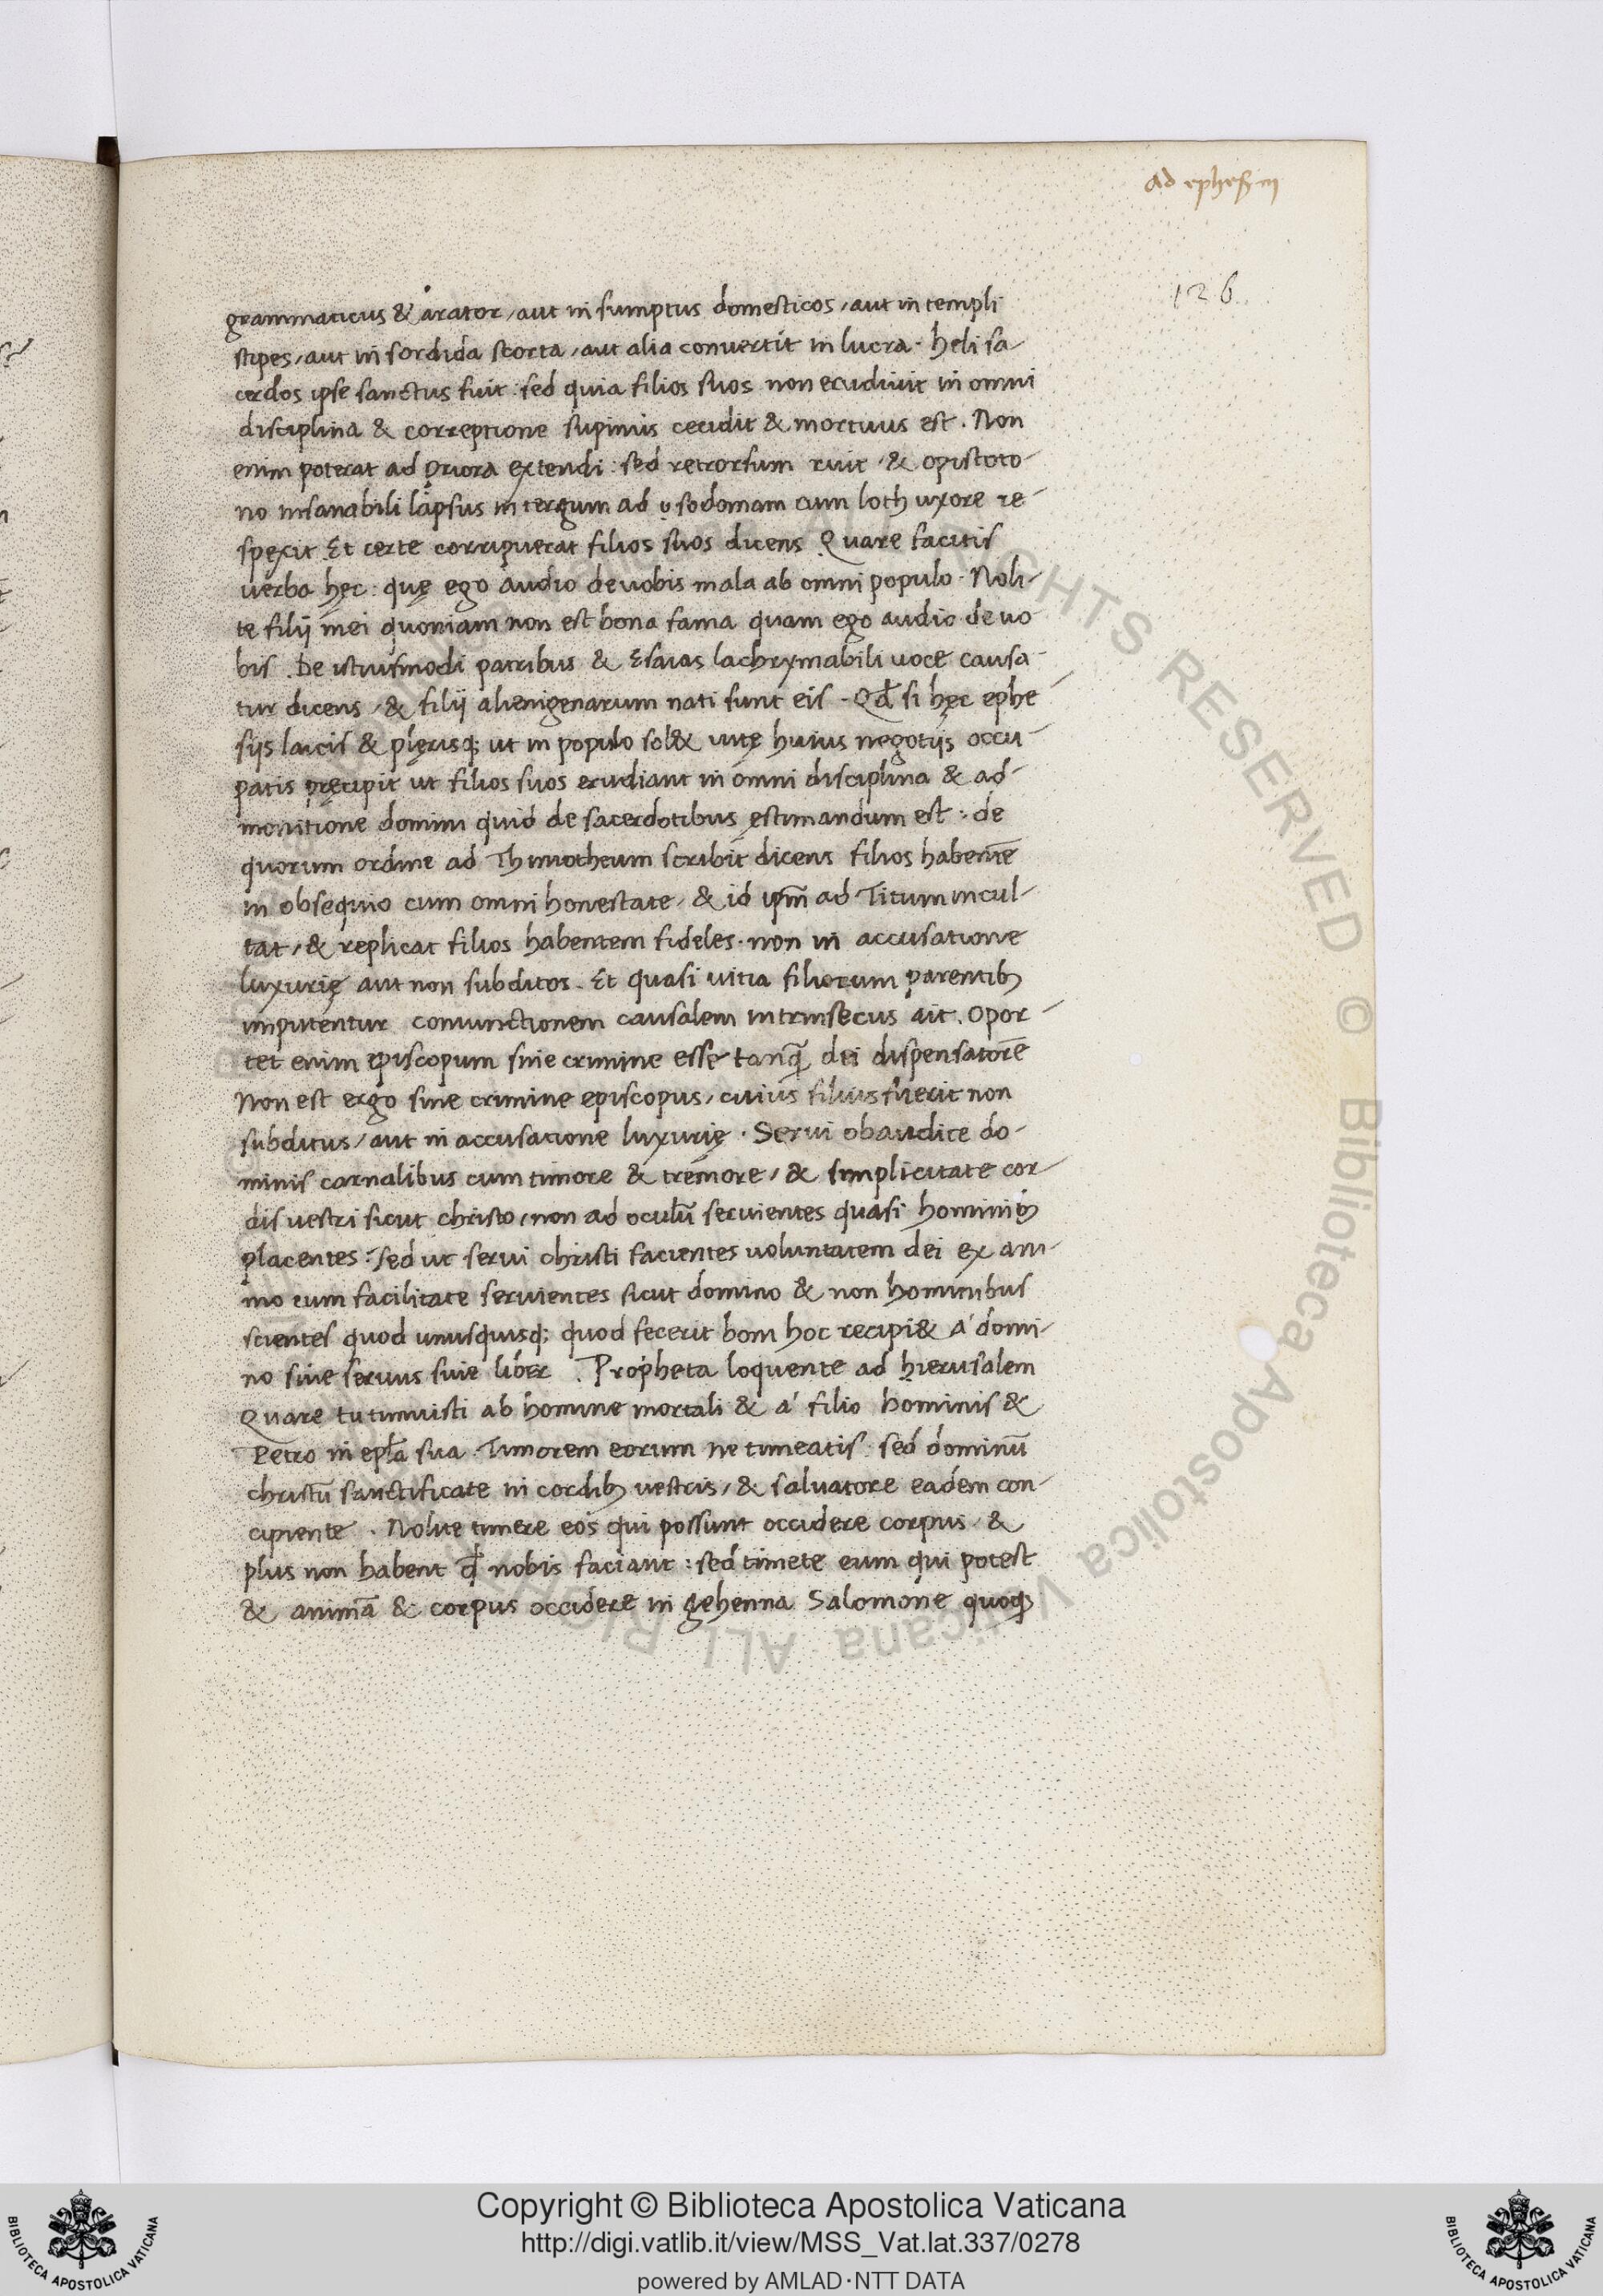 ad ephes. iii
126
grammaticus & orator, aut in sumptus domesticos, aut in templi
stipes, aut in sordida scorta, aut alia convertit in lucra. heli sa
cerdos ipse sanctus fuit: sed quia filios suos non erudiuit in omni
disciplina & correptione supinus cecidit & mortuus est. Non
enim poterat ad priora extendi: sed retrorsum ruit, & opistoto-
no insanabili lapsus in tergum ad sodomam cum loth uxore re-
spexit. Et certe corripuerat filios suos dicens Quare facitis
uerba hęc: quę ego audio de uobis mala ab omni populo. Noli-
te filij mei quoniam non est bona fama quam ego audio de uo
bis. De istiusmodi patribus & Esaias lachrymabili uoce causa-
tur dicens, & filij alienigenarum nati sunt eis. Qđ si hęc ephe
sijs laicis & plęrisq; ut in populo sol& uitę huius negotijs occu-
patis pręcipit ut filios suos erudiant in omni disciplina & ad-
monitione domini quid de sacerdotibus ęstimandum est: de
quorum ordine ad Thimotheum scribit dicens filios habentē
in obsequio cum omni honestate, & id ipm̄ ad Titum incul-
tat, & replicat filios habentem fideles. non in accusatione
luxurię aut non subditos. Et quasi uitia filiorum parentib;
imputentur coniunctionem causalem intrinsecus ait. Opor-
tet enim episcopum sine crimine esse tanq̄ dei dispensatorē
Non est ergo sine crimine episcopus, cuius filius fuerit non
subditus, aut in accusatione luxurię. Serui obaudite do-
minis carnalibus cum timore & tremore, & simplicitate cor-
dis uestri sicut christo, non ad oculū seruientes quasi hominib;
placentes: sed ut serui christi facientes uoluntatem dei ex ani-
mo cum facilitate seruientes sicut domino & non hominibus
scientes quod unusquisq; quod fecerit boni hoc recipi& á domi-
no siue seruus siue liber. Propheta loquente ad hierusalem
Quare tu timuisti ab homine mortali & á filio hominis &
Petro in epła sua. Timorem eorum ne timeatis: sed dominū
christū sanctificate in cordib; uestris, & saluatore eadem con-
cipiente. Nolite timere eos qui possunt occidere corpus, &
plus non habent qđ nobis faciant: sed timete eum qui potest
& animā & corpus occidere in gehenna Salomone quoq;
Copyright © Biblioteca Apostolica Vaticana
http://digi.vatlib.it/view/MSS_Vat.lat.337/0278
powered by AMLAD·NTT DATA
BIBLIOTECA APOSTOLICA VATICANA
BIBLIOTECA APOSTOLICA VATICANA